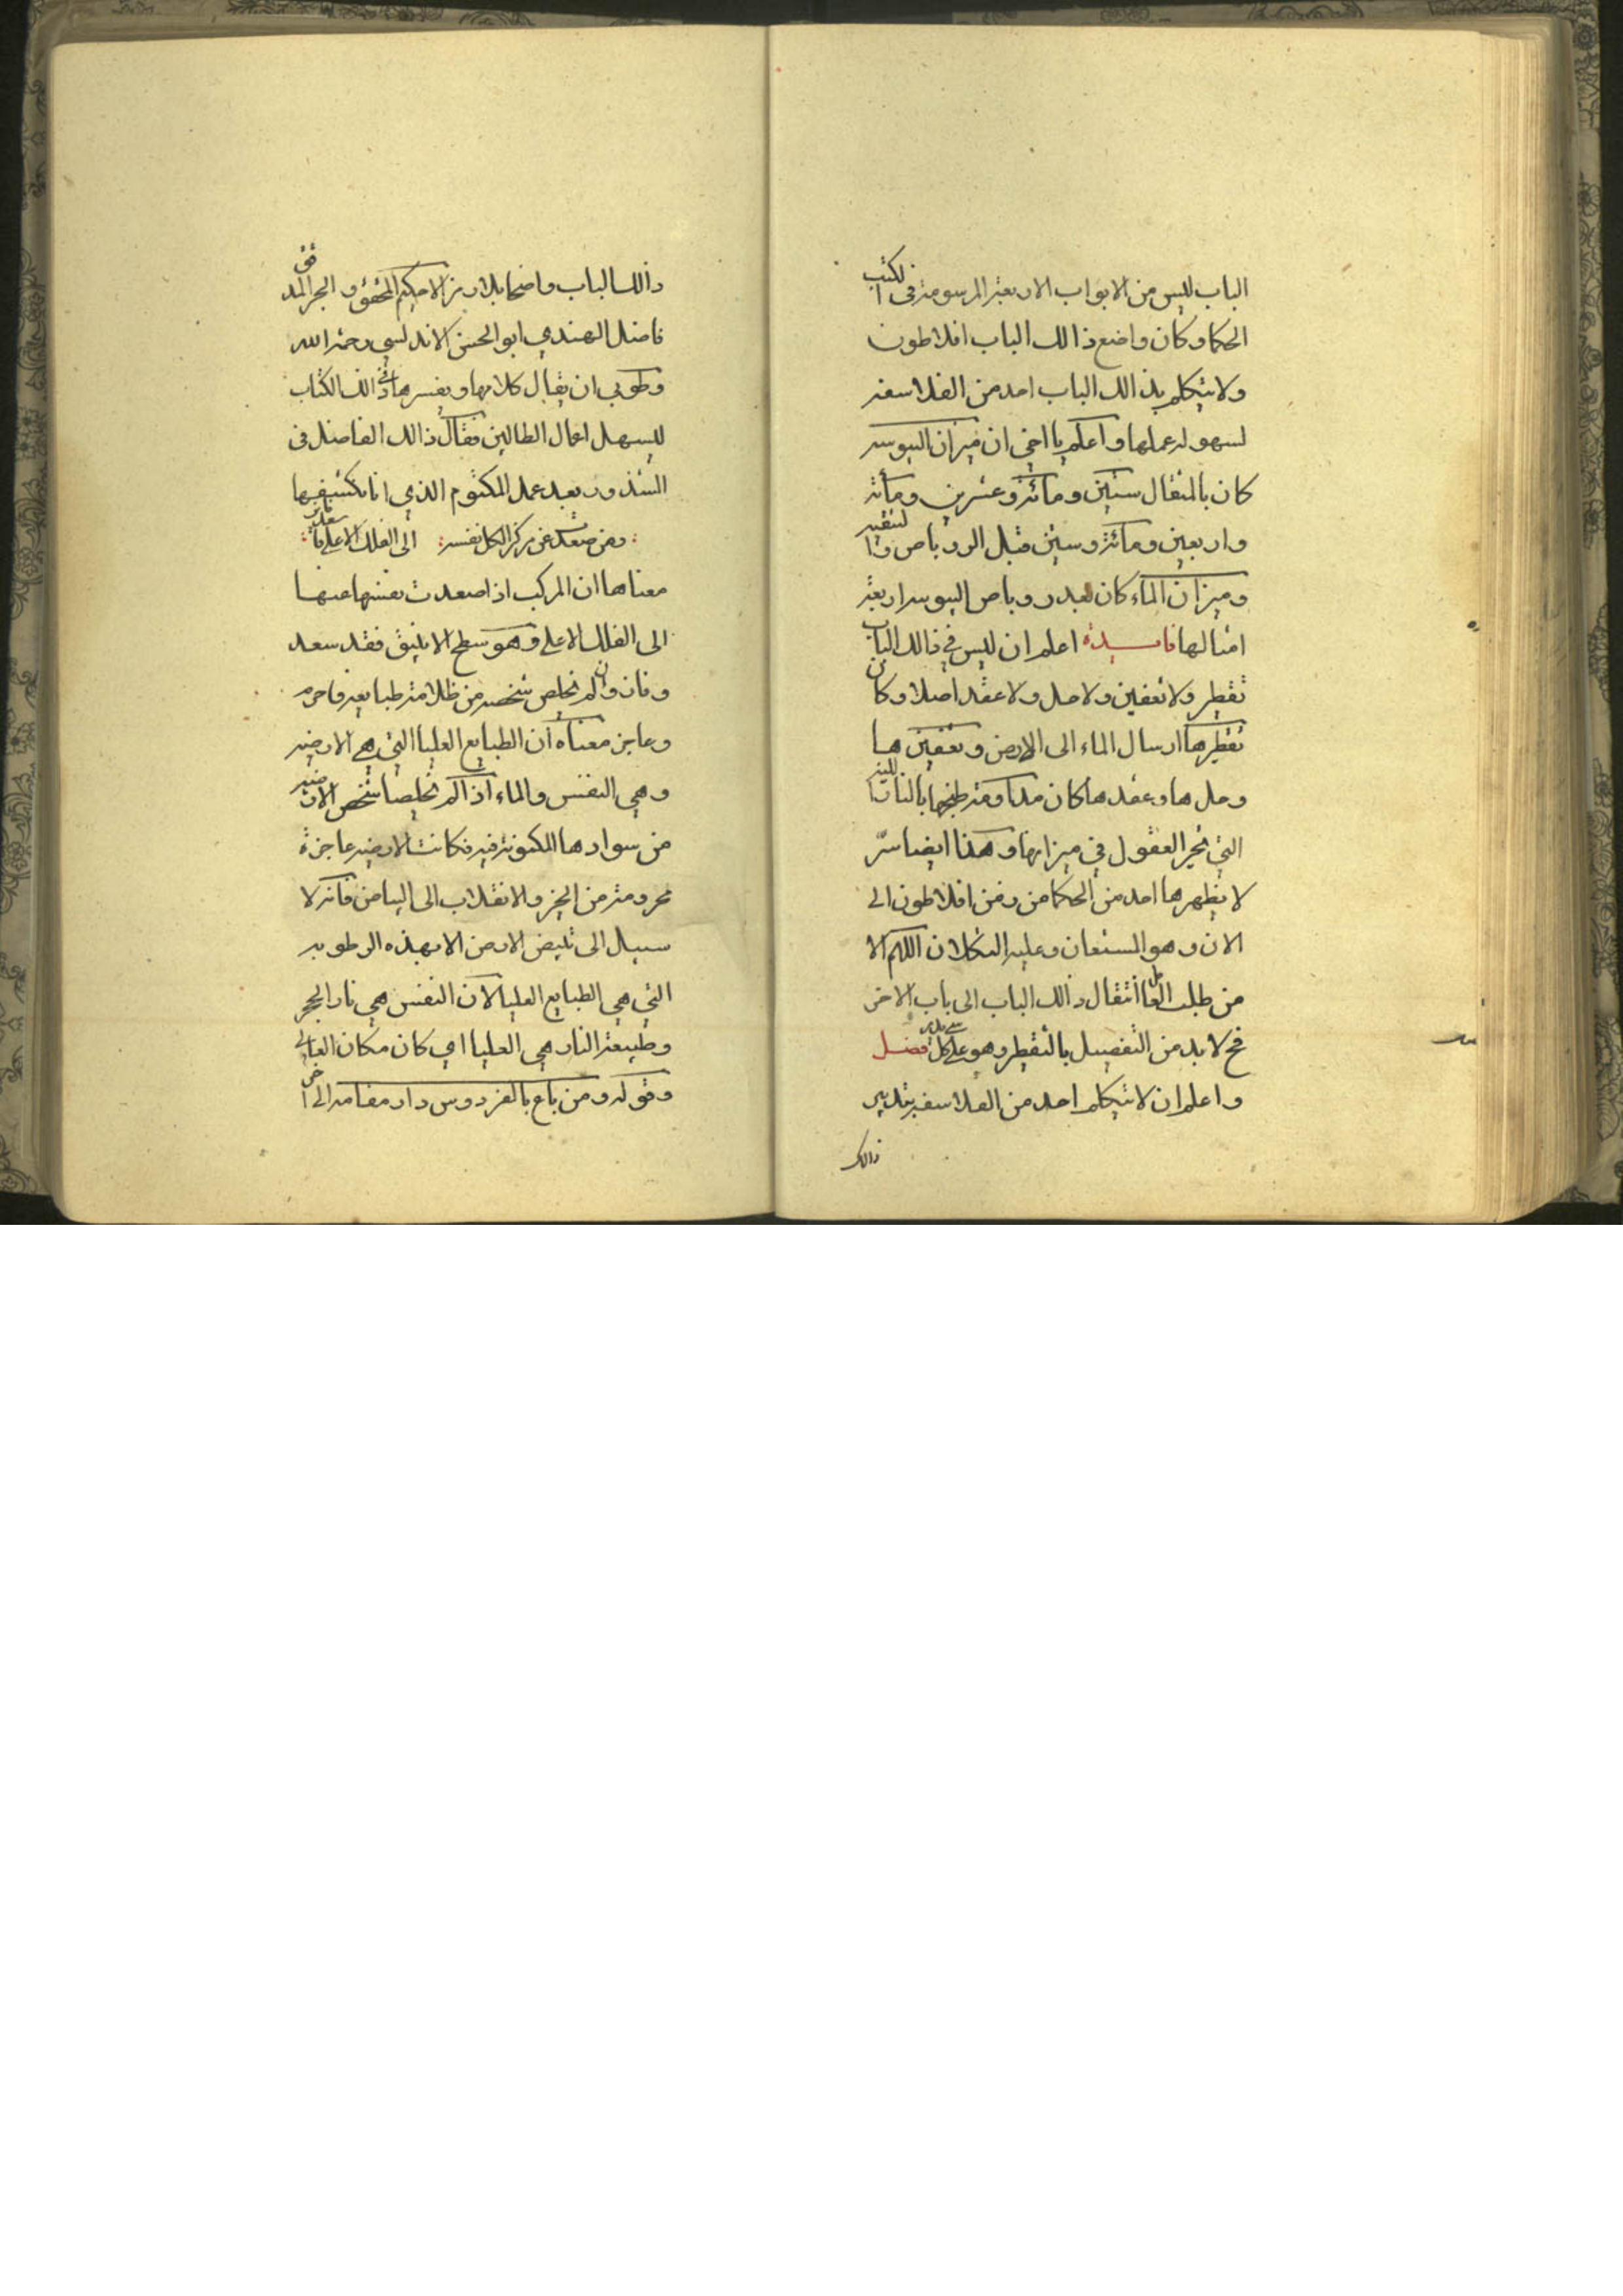 الباب ليس من الابواب الاربعة المرسومة في الكتب
الحكما وكان واضع ذالك الباب افلاطون
ولا يتكلم بذالك الباب احد من الفلاسفة
لسهولة عملها واعلم يا اخي ان ميزان اليبوسه
كان بالمثقال ستين ومائة وعشرين ومائة
واربعين ومائة وستين قبل الروباص والتنقيه
وميزان الماء كان بعد روباص اليبوسه اربعة
امثالها فايدة اعلم ان ليس في ذالك الباب
تقطير ولا تعفين ولا حل ولا عقد اصلا وكان
تقطيرها ارسال الماء الى الارض وتعفينها
وحلها وعقدها كان مداومة طبخها بالنار اللينه
التي تحير العقول في ميزانها وهذا ايضا سرّ
لا يظهرها احد من الحكما من زمن افلاطون الى
الان وهو المستعان وعليه التكلان اللهم الا
من طلب العامل انتقال ذالك الباب الى باب الاخر
فح لا بد من التفصيل بالتقطير وهو على كل شي قدير فصل
واعلم ان لا يتكلم احد من الفلاسفه بتدبير
ذالك
ذالك الباب واضحا بلا رمز الا حكيم المحقق و الحبر المدقق
فاضل الهندي ابو الحسن الاندلسي رحمة الله
وطوبى ان يقابل كلامها ويفسرها في ذالك الكتاب
ليسهل اعمال الطالبين فقال ذالك الفاضل في
الشذور بعد عمل المكتوم الذي انا نكشفها
ومن صعدت عن مركز الكل نفسه الى الفلك الاعلى فانه سعد
معناها ان المركب اذا صعدت نفسها عنها
الى الفلك الاعلى وهو سطح الانبيق فقد سعد
وفاز وان لم تخلص شخصه من ظلامة طبايعه فاحرم
وعاجز معناه ان الطبايع العليا التي هي الارضيه
وهي النفس والماء اذا لم تخلصا شخص الارضيه
من سوادها المكونة فيه فكانت الارضيه عاجزة
محرومة من الخير والانقلاب الى البياض فانه لا
سبيل الى تبيض الارض الا بهذه الرطوبه
التي هي الطبايع العليا لان النفس هي نار الحجر
وطبيعة النار هي العليا اي كان مكان العالي
وقوله ومن باع بالفردوس دار مقامه الى اخر